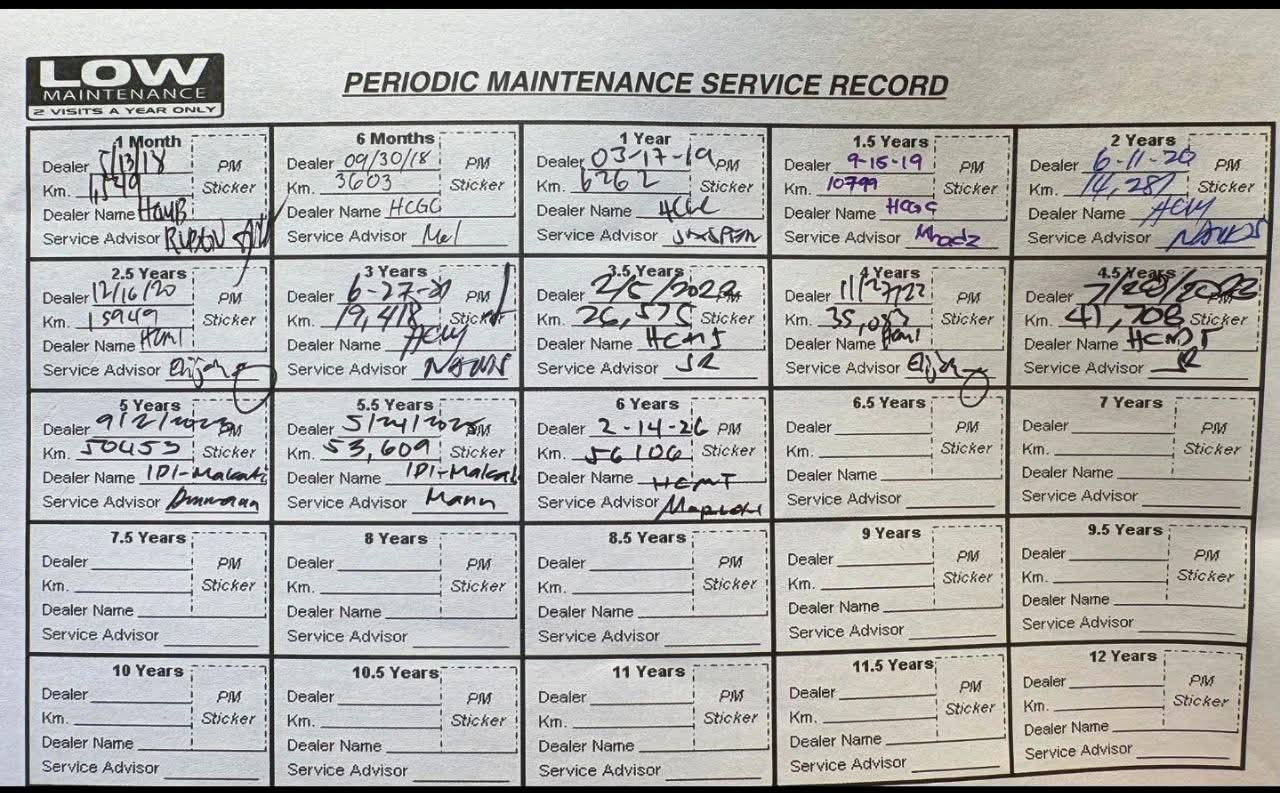 LOW
MAINTENANCE
2 VISITS A YEAR ONLY
PERIODIC MAINTENANCE SERVICE RECORD
1 Month
Dealer 5/13/18 PM
Km. 1,549 Sticker
Dealer Name
Service Advisor
6 Months
Dealer 09/30/18 PM
Km. 3603 Sticker
Dealer Name HCGC
Service Advisor Mel
1 Year
Dealer 03-17-19 PM
Km. 6262 Sticker
Dealer Name
Service Advisor
1.5 Years
Dealer 9-15-19 PM
Km. 10799 Sticker
Dealer Name HCGC
Service Advisor Mhadz
2 Years
Dealer 6-11-20 PM
Km. 14,287 Sticker
Dealer Name
Service Advisor
2.5 Years
Dealer 12/16/20 PM
Km. 15949 Sticker
Dealer Name
Service Advisor Elijah
3 Years
Dealer 6-27-21 PM
Km. 19,418 Sticker
Dealer Name
Service Advisor
3.5 Years
Dealer 2/5/2022 PM
Km. 26,575 Sticker
Dealer Name
Service Advisor JR
4 Years
Dealer 11/27/22 PM
Km. Sticker
Dealer Name
Service Advisor Elijah
4.5 Years
Dealer PM
Km. 41,708 Sticker
Dealer Name
Service Advisor JR
5 Years
Dealer PM
Km. 50453 Sticker
Dealer Name IDI-Makati
Service Advisor
5.5 Years
Dealer 5/24/2025 PM
Km. 53,609 Sticker
Dealer Name IDI-Makati
Service Advisor Mann
6 Years
Dealer 2-14-26 PM
Km. 56106 Sticker
Dealer Name
Service Advisor
6.5 Years
Dealer PM
Km. Sticker
Dealer Name
Service Advisor
7 Years
Dealer PM
Km. Sticker
Dealer Name
Service Advisor
7.5 Years
Dealer PM
Km. Sticker
Dealer Name
Service Advisor
8 Years
Dealer PM
Km. Sticker
Dealer Name
Service Advisor
8.5 Years
Dealer PM
Km. Sticker
Dealer Name
Service Advisor
9 Years
Dealer PM
Km. Sticker
Dealer Name
Service Advisor
9.5 Years
Dealer PM
Km. Sticker
Dealer Name
Service Advisor
10 Years
Dealer PM
Km. Sticker
Dealer Name
Service Advisor
10.5 Years
Dealer PM
Km. Sticker
Dealer Name
Service Advisor
11 Years
Dealer PM
Km. Sticker
Dealer Name
Service Advisor
11.5 Years
Dealer PM
Km. Sticker
Dealer Name
Service Advisor
12 Years
Dealer PM
Km. Sticker
Dealer Name
Service Advisor